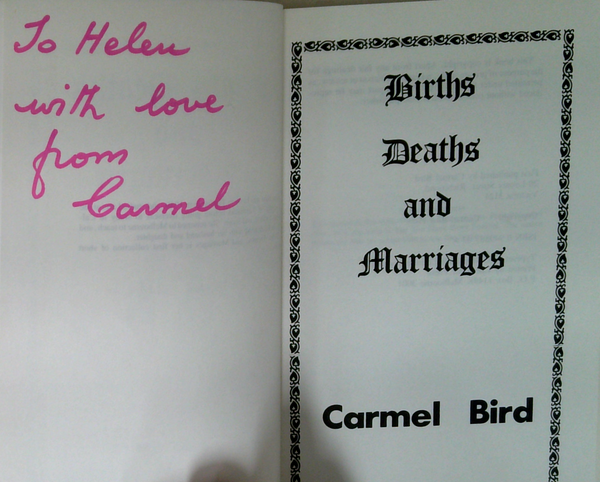 To Helen
with love
from
Carmel
Births
Deaths
and
Marriages
Carmel Bird